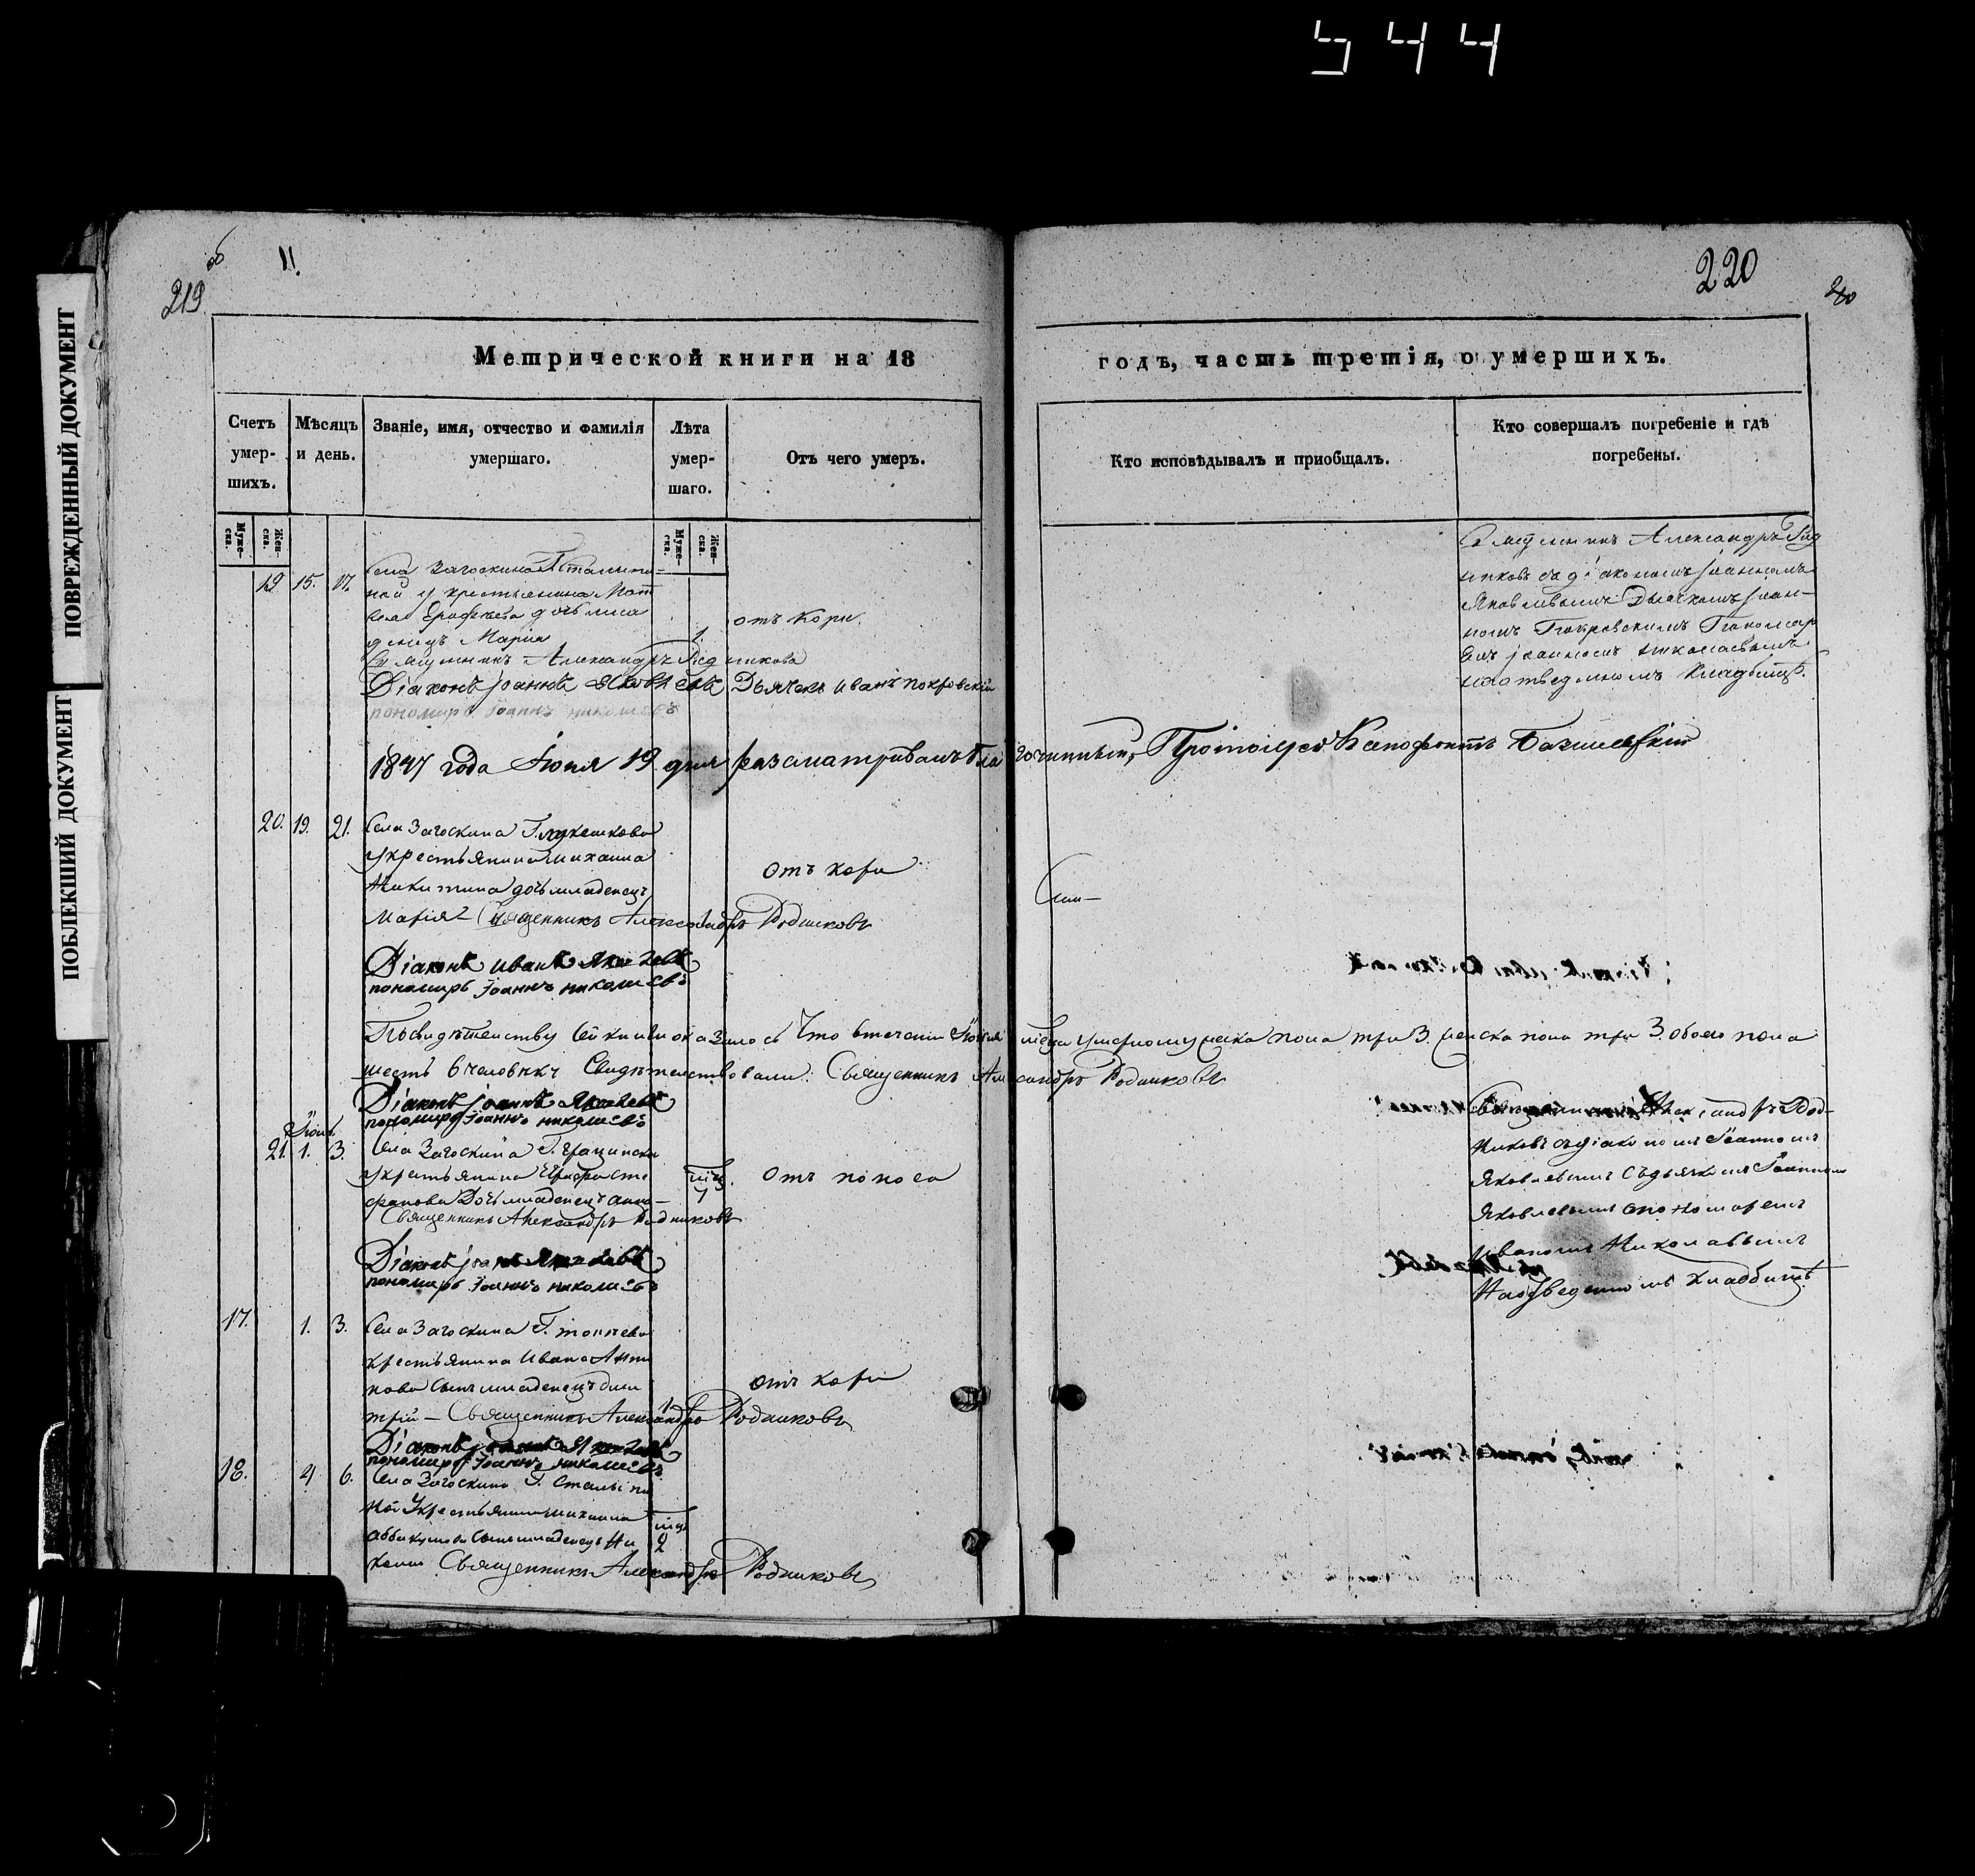 544
ПОВРЕЖДЕННЫЙ ДОКУМЕНТ
ПОБЛЕКШИЙ ДОКУМЕНТ
219
об
11.
220
Метрической книги на 18
годъ, часть третія, о умершихъ.
Счетъ умер-шихъ.
Мѣсяцъ и день.
Званіе, имя, отчество и фамилія умершаго.
Лѣта умер-шаго.
Отъ чего умеръ.
Кто исповѣдывалъ и приобщалъ.
Кто совершалъ погребеніе и гдѣ погребены.
Муже-ска.
Жен-ска.
Муже-ска.
Жен-ска.
19 15. 17.
Села Загоскина Г.
крестьянина Мат
дочь мла
денецъ Марія
1.
отъ кори.
Священникъ Александръ Родниковъ
Діаконъ Іоаннъ Яковлевъ Дьячекъ Иванъ Покровскій
пономарь Іоаннъ николаевъ
Священникъ Александръ Род
никовъ съ діакономъ Іоанномъ
Яковлевымъ Дьячкомъ Іоан-
номъ Покровскимъ Пономар
емъ Іоанномъ Николаевымъ
на отведенномъ кладбищѣ.
1847 года Іюня 19 дня разсматривалъ благочинный, Протоіерей Ксенофонтъ
20. 19. 21.
Села Загоскина Г.
у крестьянина михаила
Никитина дочь младенецъ
Марія
1
отъ кори
Священникъ Александръ Родниковъ
Діаконъ иванъ Яковлевъ
пономарь Іоаннъ николаевъ
По свидѣтельству сей книги оказалось Что втечении Іюня месяца умершому жеска пола три 3. женска пола три 3. обоего пола
шесть 6 человѣкъ Свидѣтельствовали: Священникъ Александръ Родниковъ
Діаконъ Іоаннъ Яковлевъ
пономарь Іоаннъ николаевъ
Іюль.
21. 1. 3.
Села Загоскина Г.
у крестьянина Сте
фанова Дочь младенецъ анна
мц. 7
отъ поноса
Священникъ Александръ Родниковъ
Діаконъ Іоаннъ Яковлевъ
пономарь Іоаннъ николаевъ
Священникъ Александръ Род-
никовъ съ діакономъ Іоанномъ
Яковлевымъ Съ дьячкомъ Іоанномъ
Яковлевымъ спономаремъ
Иваномъ Николаевымъ
На отведенномъ кладбищѣ
17. 1. 3.
Села Загоскина Г.
крестьянина Ивана Анти
пова сынъ младенецъ дми
трій
1
отъ кори
Священникъ Александръ Родниковъ
Діаконъ Іоаннъ Яковлевъ
пономарь Іоаннъ николаевъ
18. 4 6.
Села Загоскина Г.
ной у крестьянина михаила
аввакумова сынъ младенецъ Ни
колай
мц 2
Священникъ Александръ Родниковъ